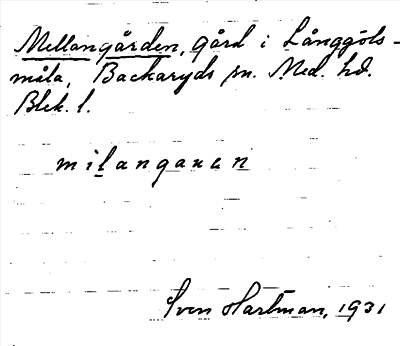 Mellangården, gård i Långgöls-
måla, Backaryds sn. Med. hd.
Blek. l.
milangaɹen
Sven Hartman, 1931